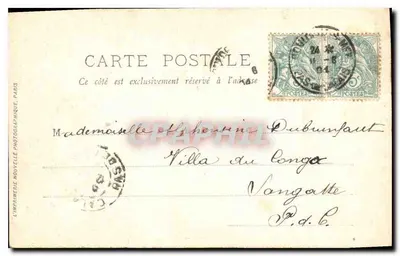 CARTE POSTALE
Ce côté est exclusivement réservé à l'adresse
Mademoiselle Dubrunfaut
Villa du Congo
Sangatte
P.d.C
L'IMPRIMERIE NOUVELLE PHOTOGRAPHIQUE, PARIS